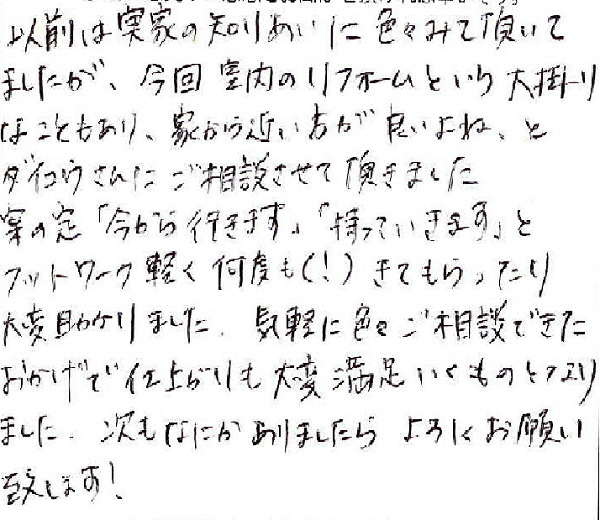 以前は実家の知りあいに色々みて頂いて
ましたが、今回室内のリフォームという大掛り
なこともあり、家から近い方が良いよね、と
ダイコウさんにご相談させて頂きました
案の定「今から行きます」「持っていきます」と
フットワーク軽く何度も(!)きてもらったり
大変助かりました。気軽に色々ご相談できた
おかげで仕上がりも大変満足いくものとなり
ました。次もなにかありましたらよろしくお願い
致します!